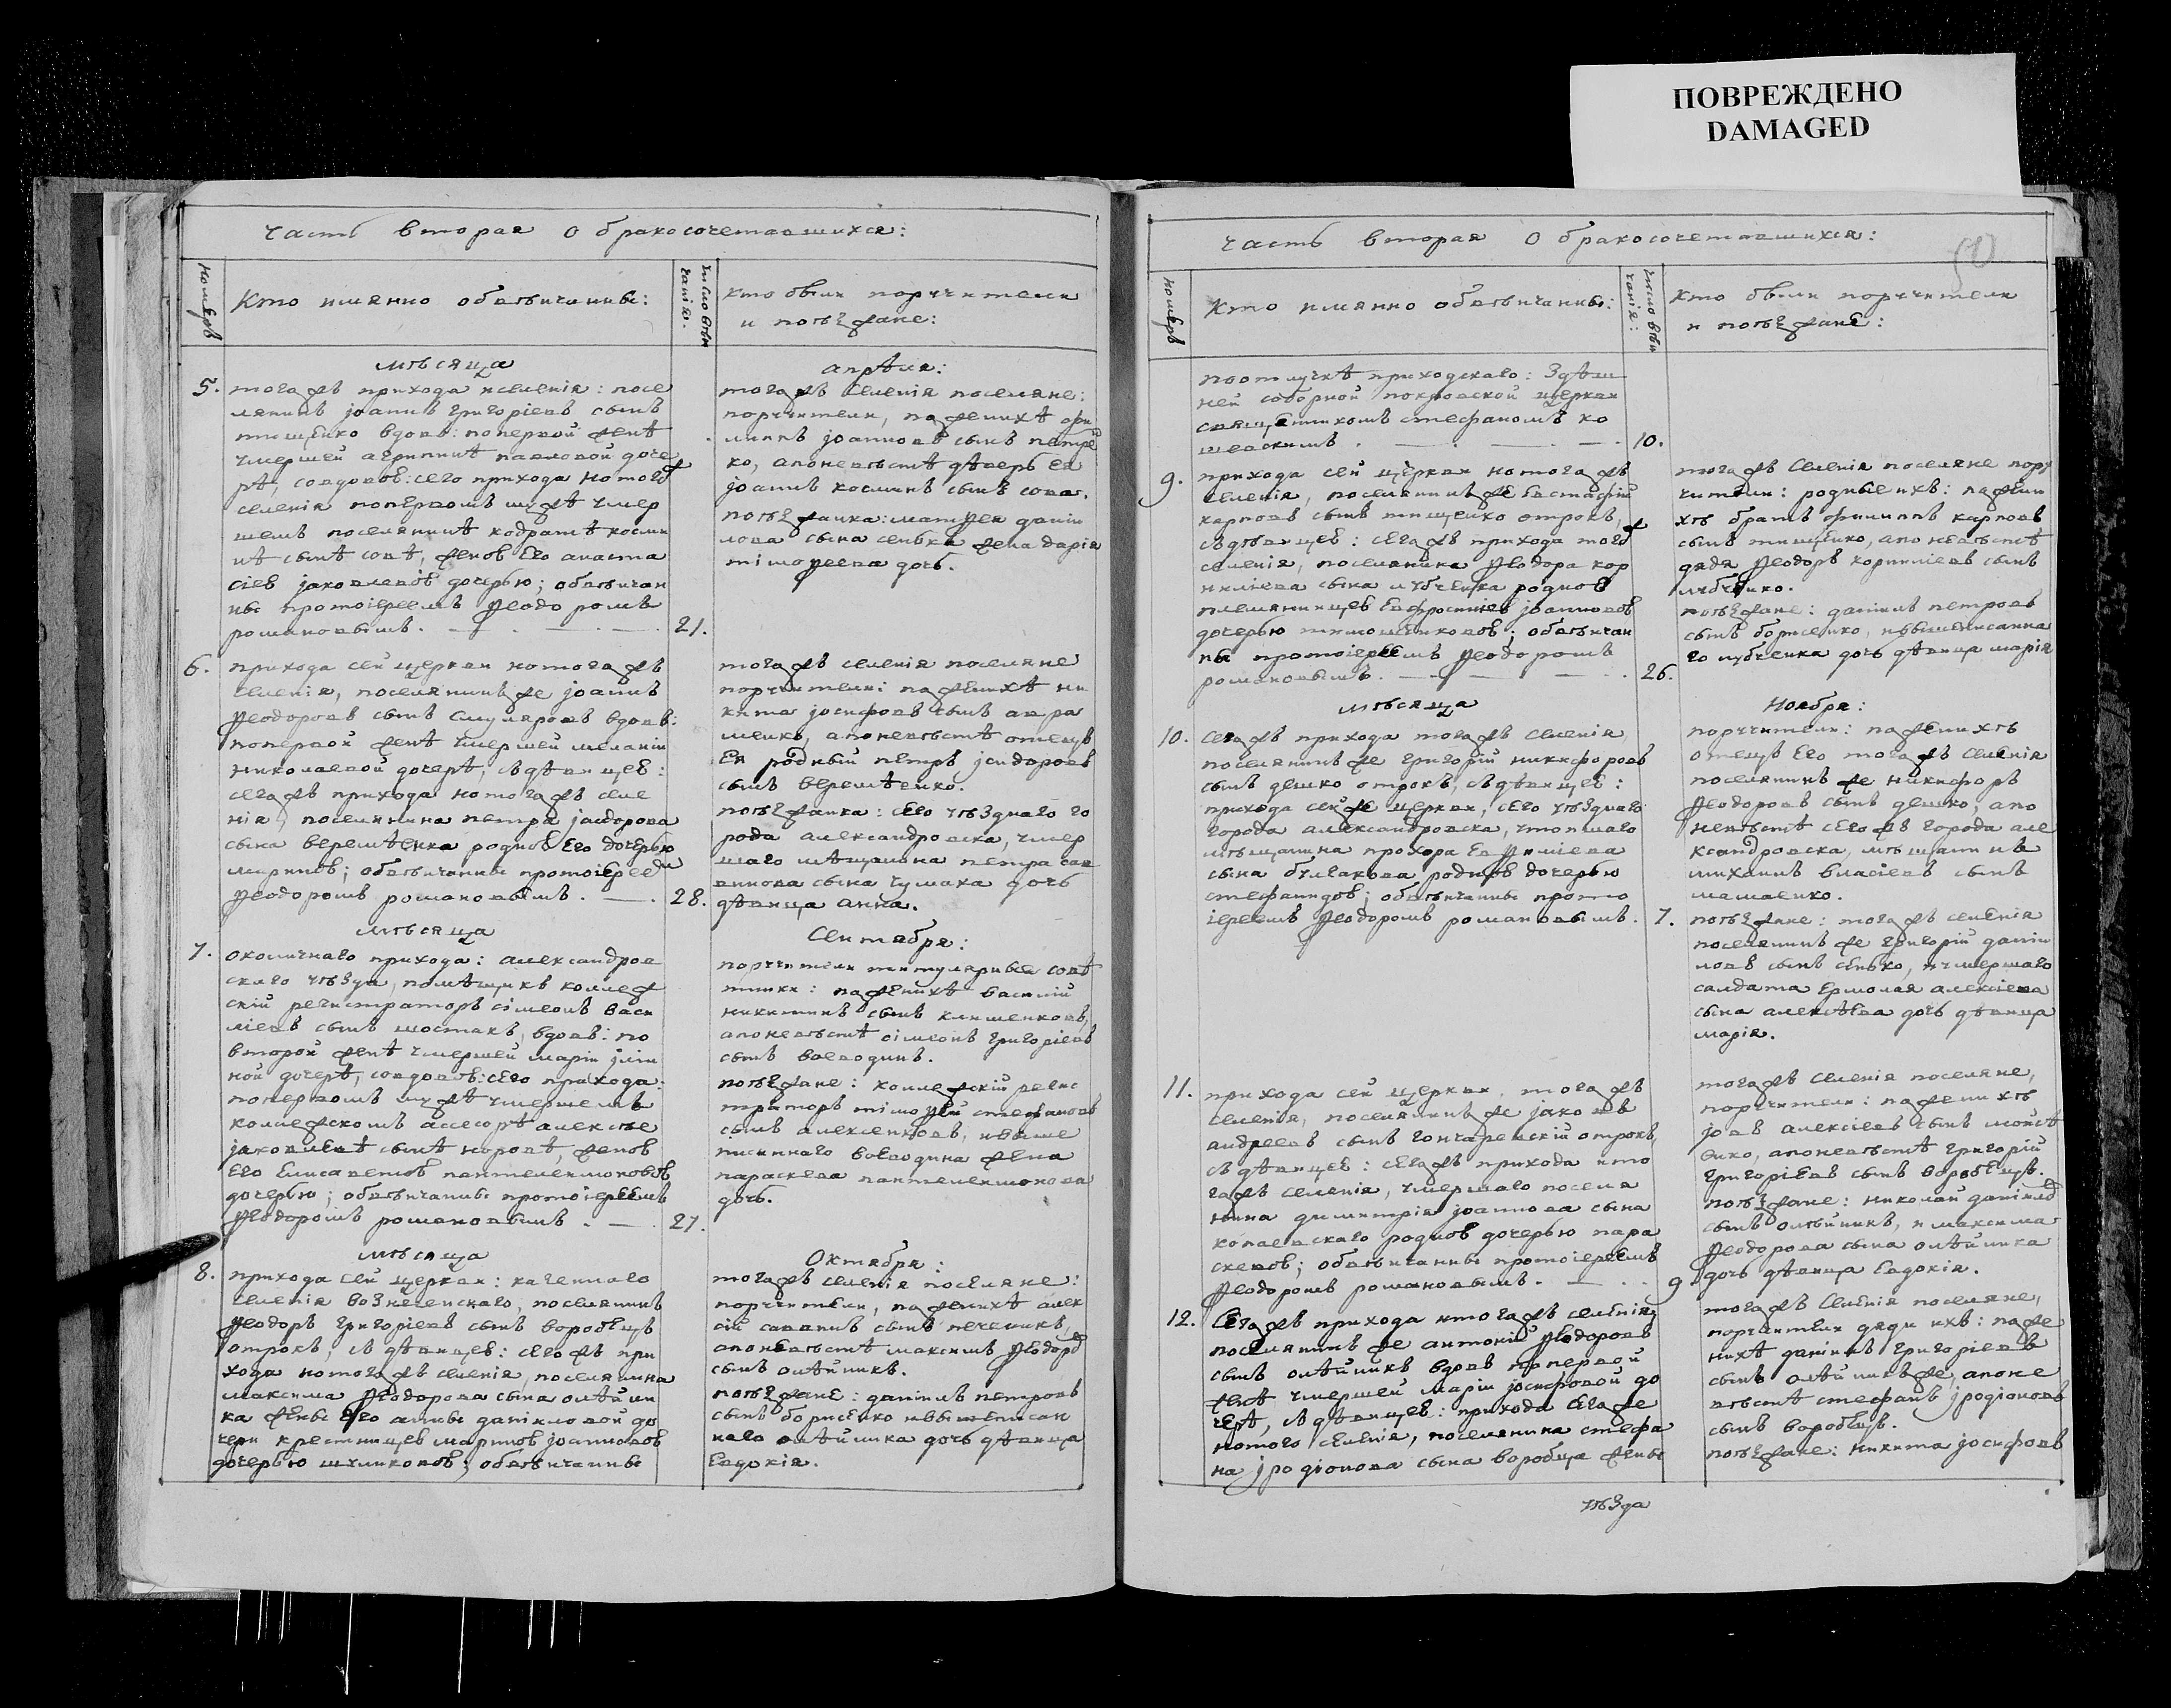 ПОВРЕЖДЕНО
DAMAGED
часть вторая о бракосочетавшихся:
номеръ
Кто имянно обвѣнчанны:
число вѣн
чанія.
кто были поручители
и поѣзжане:
мѣсяца
апрѣля:
5. тогажъ прихода иселенія: посе
лянинъ јоаннъ григоріевъ сынъ
тищенко вдовъ: попервой женѣ
умершей агрипинѣ павловой доче
рѣ, совдовою: сего прихода итого ж
селенія попервомъ мужѣ умер
шемъ поселянинѣ кодратѣ косми
нѣ сынѣ совѣ, женою его анаста
сіею јаковлевою дочерью; обвѣнчан
ны протоіереемъ Ѳеодоромъ
романовымъ. 21.
тогажъ селенія поселяне:
поручители, паженихѣ фи
липпъ јоанновъ сынъ петре
ко, апоневѣстѣ дѣверь ея
јоаннъ косминъ сынъ сова.
поѣзжанка: матѳея даніи
лова сына сенька жена дарія
тімоѳеева дочь.
6. прихода сей церкви итогажъ
селенія, поселянинъ же јоаннъ
Ѳеодоровъ сынъ смуляровъ вдовъ:
попервой женѣ умершей меланіи
николаевой дочерѣ; съдѣвицею:
сегажъ прихода итогажъ селе
нія, поселянина петра јсидорова
сына веремѣенка родною его дочерью
мариною; обвѣнчанны протоіереем
Ѳеодоромъ романовымъ. 28.
тогажъ селенія поселяне
поручители: паженихѣ ни
кита јосифовъ сынъ авра
менко, апоневѣстѣ отецъ
ея родный петръ јсидоровъ
сынъ веремѣенко.
поѣзжанка: сего уѣзднаго го
рода александровска, умер
шаго мѣщанина петра сав
винова сына чумака дочь
дѣвица анна.
мѣсяца
Сентября:
7. околичнаго прихода: александров
скаго уѣзда, помѣщикъ коллеж
скій регистраторъ сімеонъ васи
ліевъ сынъ шостакъ, вдовъ: по
второй женѣ умершей маріи јліи
ной дочерѣ, совдовою: сего прихода:
попервомъ мужѣ умершемъ
коллежскомъ ассесорѣ алексѣе
јаковлевѣ сынѣ норовѣ, женою
его Елисаветою пантелеимоновою
дочерью; обвѣнчанны протоіереемъ
Ѳеодоромъ романовымъ. 27.
поручители титулярные совѣ
тники: паженихѣ василій
никитинъ сынъ клименковъ,
апоневѣстѣ сімеонъ григоріевъ
сынъ воеводинъ.
поѣзжане: коллежскій регис
траторъ тімоѳей стефановъ
сынъ алексенковъ, ивыше
писаннаго воеводина жена
параскева пантелеимонова
дочь.
мѣсяца
Октября:
8. прихода сей церкви: казеннаго
селенія вознесенскаго, поселянинъ
Ѳеодоръ григоріевъ сынъ воробецъ
отрокъ, съ дѣвицею: сегожъ при
хода итогажъ селенія, поселянина
максима Ѳеодорова сына олѣйни
ка жены его анны даніиловой до
чери крестницею мариною јоанновою
дочерью шуликовою; обвѣнчанны
тогажъ селенія поселяне:
поручители, паженихѣ алек
сій саввинъ сынъ печеникъ,
апоневѣстѣ максимъ Ѳеодоро
сынъ олѣйникъ.
поѣзжане: даніилъ петровъ
сынъ борисенко ивышеписан
наго олѣйника дочь дѣвица
Евдокія.
часть вторая о бракосочетавшихся:
50
номеръ
Кто имянно обвѣнчанны:
число вѣн
чанія:
Кто были поручители
и поѣзжане:
поотлучкѣ приходскаго: Здѣш
ней соборной покровской церкви
священникомъ стефаномъ ко
шевскимъ. 10.
9. прихода сей церкви итогажъ
селенія, поселянинъ же Евстафій
карповъ сынъ тищенко отрокъ,
съдѣвицею: сегажъ прихода того ж
селенія, поселянина Ѳеодора кор
ниліева сына лубченка родною
племянницею Евфросиніею јоанновою
дочерью тимошенковою; обвѣнчан
ны протоіереемъ Ѳеодоромъ
романовымъ. 26.
тогажъ селенія поселяне пору
чители: родные ихъ: пажени
хѣ братъ филиппъ карповъ
сынъ тищенко, апоневѣстѣ
дядя Ѳеодоръ корниліевъ сынъ
лубченко.
поѣзжане: даніилъ петровъ
сынъ борисенко, ивышеписанна
го лубченка дочь дѣвица марія
мѣсяца
Ноября:
10. Сегажъ прихода тогажъ селенія,
поселянинъ же григорій никифоровъ
сынъ дешко отрокъ, съдѣвицею:
прихода сей же церкви, сего уѣзднаго
города александровска, утопшаго
мѣщанина прохора Евѳиміева
сына булгакова родною дочерью
стефанидою; обвѣнчанны прото
іереемъ Ѳеодоромъ романовымъ. 7.
поручители: паженихѣ
отецъ его тогажъ селенія
поселянинъ же никифоръ
Ѳеодоровъ сынъ дешко, апо
невѣстѣ сегожъ города але
ксандровска, мѣщанинъ
михаилъ власіевъ сынъ
мамаенко.
поѣзжане: тогажъ селенія
поселянинъ же григорій даніи
ловъ сынъ сенько, иумершаго
салдата Ермолая алексіева
сына алексѣева дочь дѣвица
марія.
11. прихода сей церкви, тогажъ
селенія, поселянинъ же јаковъ
андреевъ сынъ гончаревскій отрокъ,
съ дѣвицею: сегажъ прихода ито
гажъ селенія, умершаго поселя
нина димитрія јоаннова сына
копаевскаго родною дочерью пара
скевою; обвѣнчанны протоіереемъ
Ѳеодоромъ романовымъ. 9.
тогажъ селенія поселяне,
поручители: паженихѣ
јовъ алексіевъ сынъ моисѣ
енко, апоневѣстѣ григорій
григоріевъ сынъ воробецъ.
поѣзжане: николай даніило
сынъ олѣйникъ, и максима
Ѳеодорова сына олѣйника
дочь дѣвица Евдокія.
12. Сегажъ прихода итогажъ селенія,
поселянинъ же антоній Ѳеодоровъ
сынъ олѣйникъ вдовъ попервой
женѣ умершей маріи јосифовой до
черѣ, съдѣвицею: прихода сегаже
итого селенія, поселянина стефа
на јродіонова сына воробца жены
тогажъ селенія поселяне,
поручители дяди ихъ: паже
нихѣ даніилъ григоріевъ
сынъ олѣйникъ же, апоне
вѣстѣ стефанъ јродіоновъ
сынъ воробецъ.
поѣзжане: никита јосифовъ
уѣзда